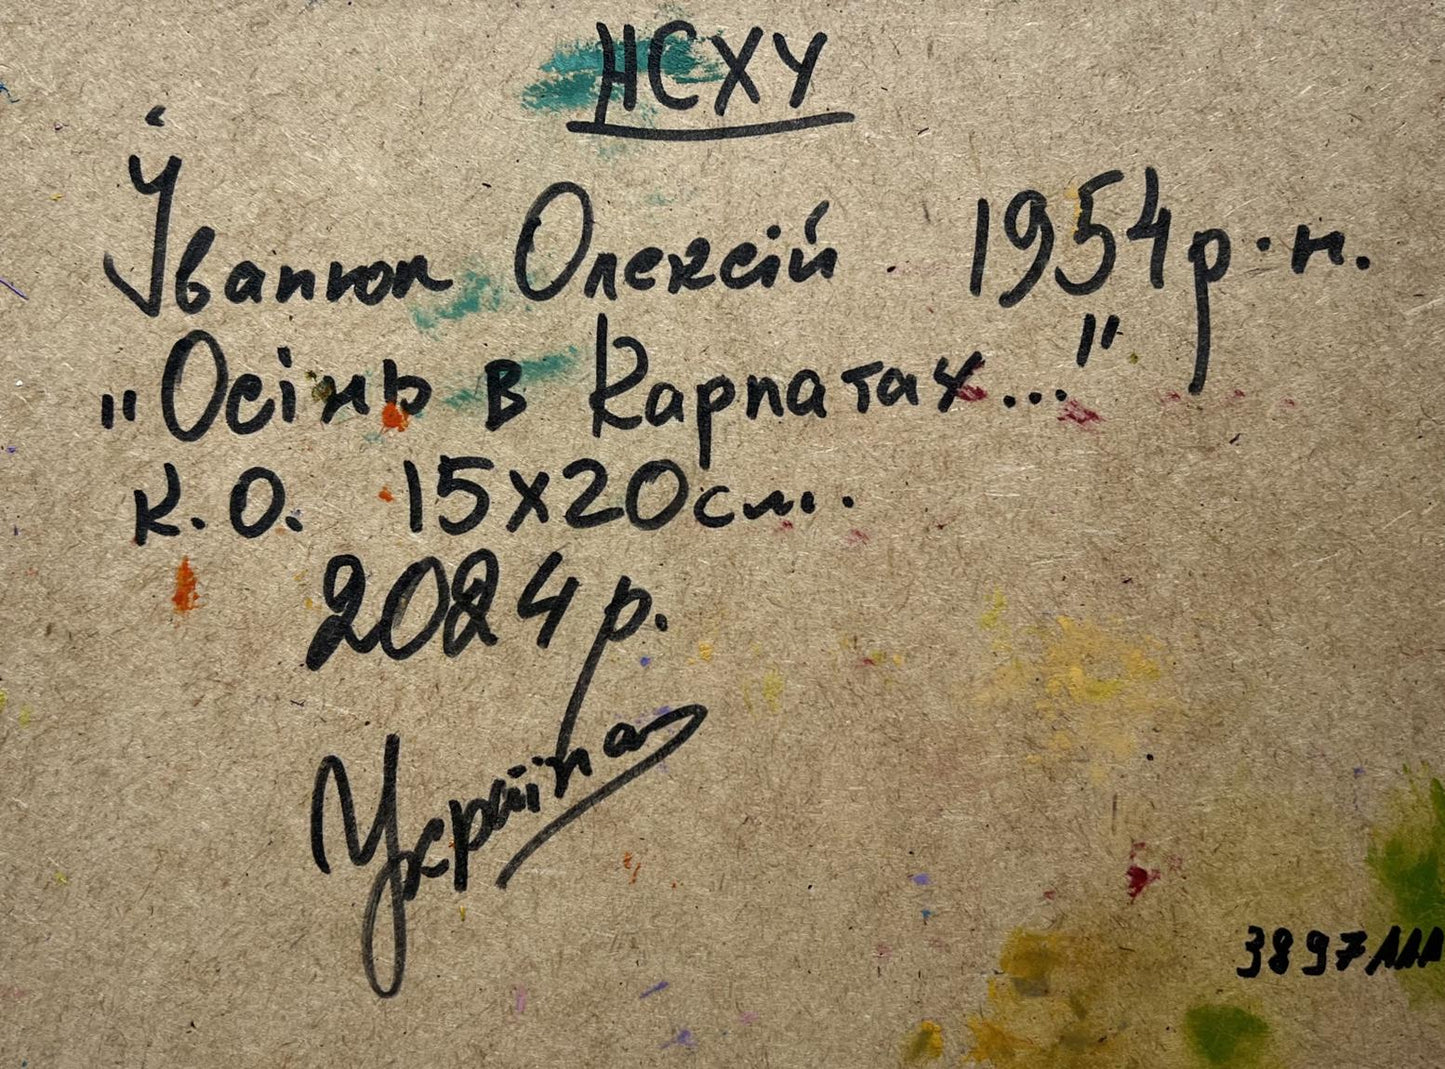 НСХУ
Іванюк Олексій 1954 р.н.
"Осінь в Карпатах..."
К.О. 15х20см.
2024 р.
Україна
3897